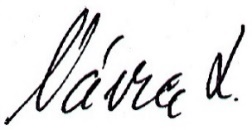 Vávra L.